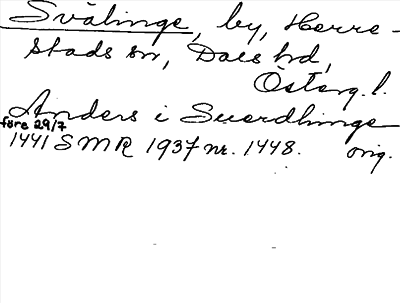 Svälinge, by, Herre-
stads sn, Dals hd,
Österg. l.
Anders i Suerdhinge
före 29/7
1441 SMR 1937 nr. 1448. orig.